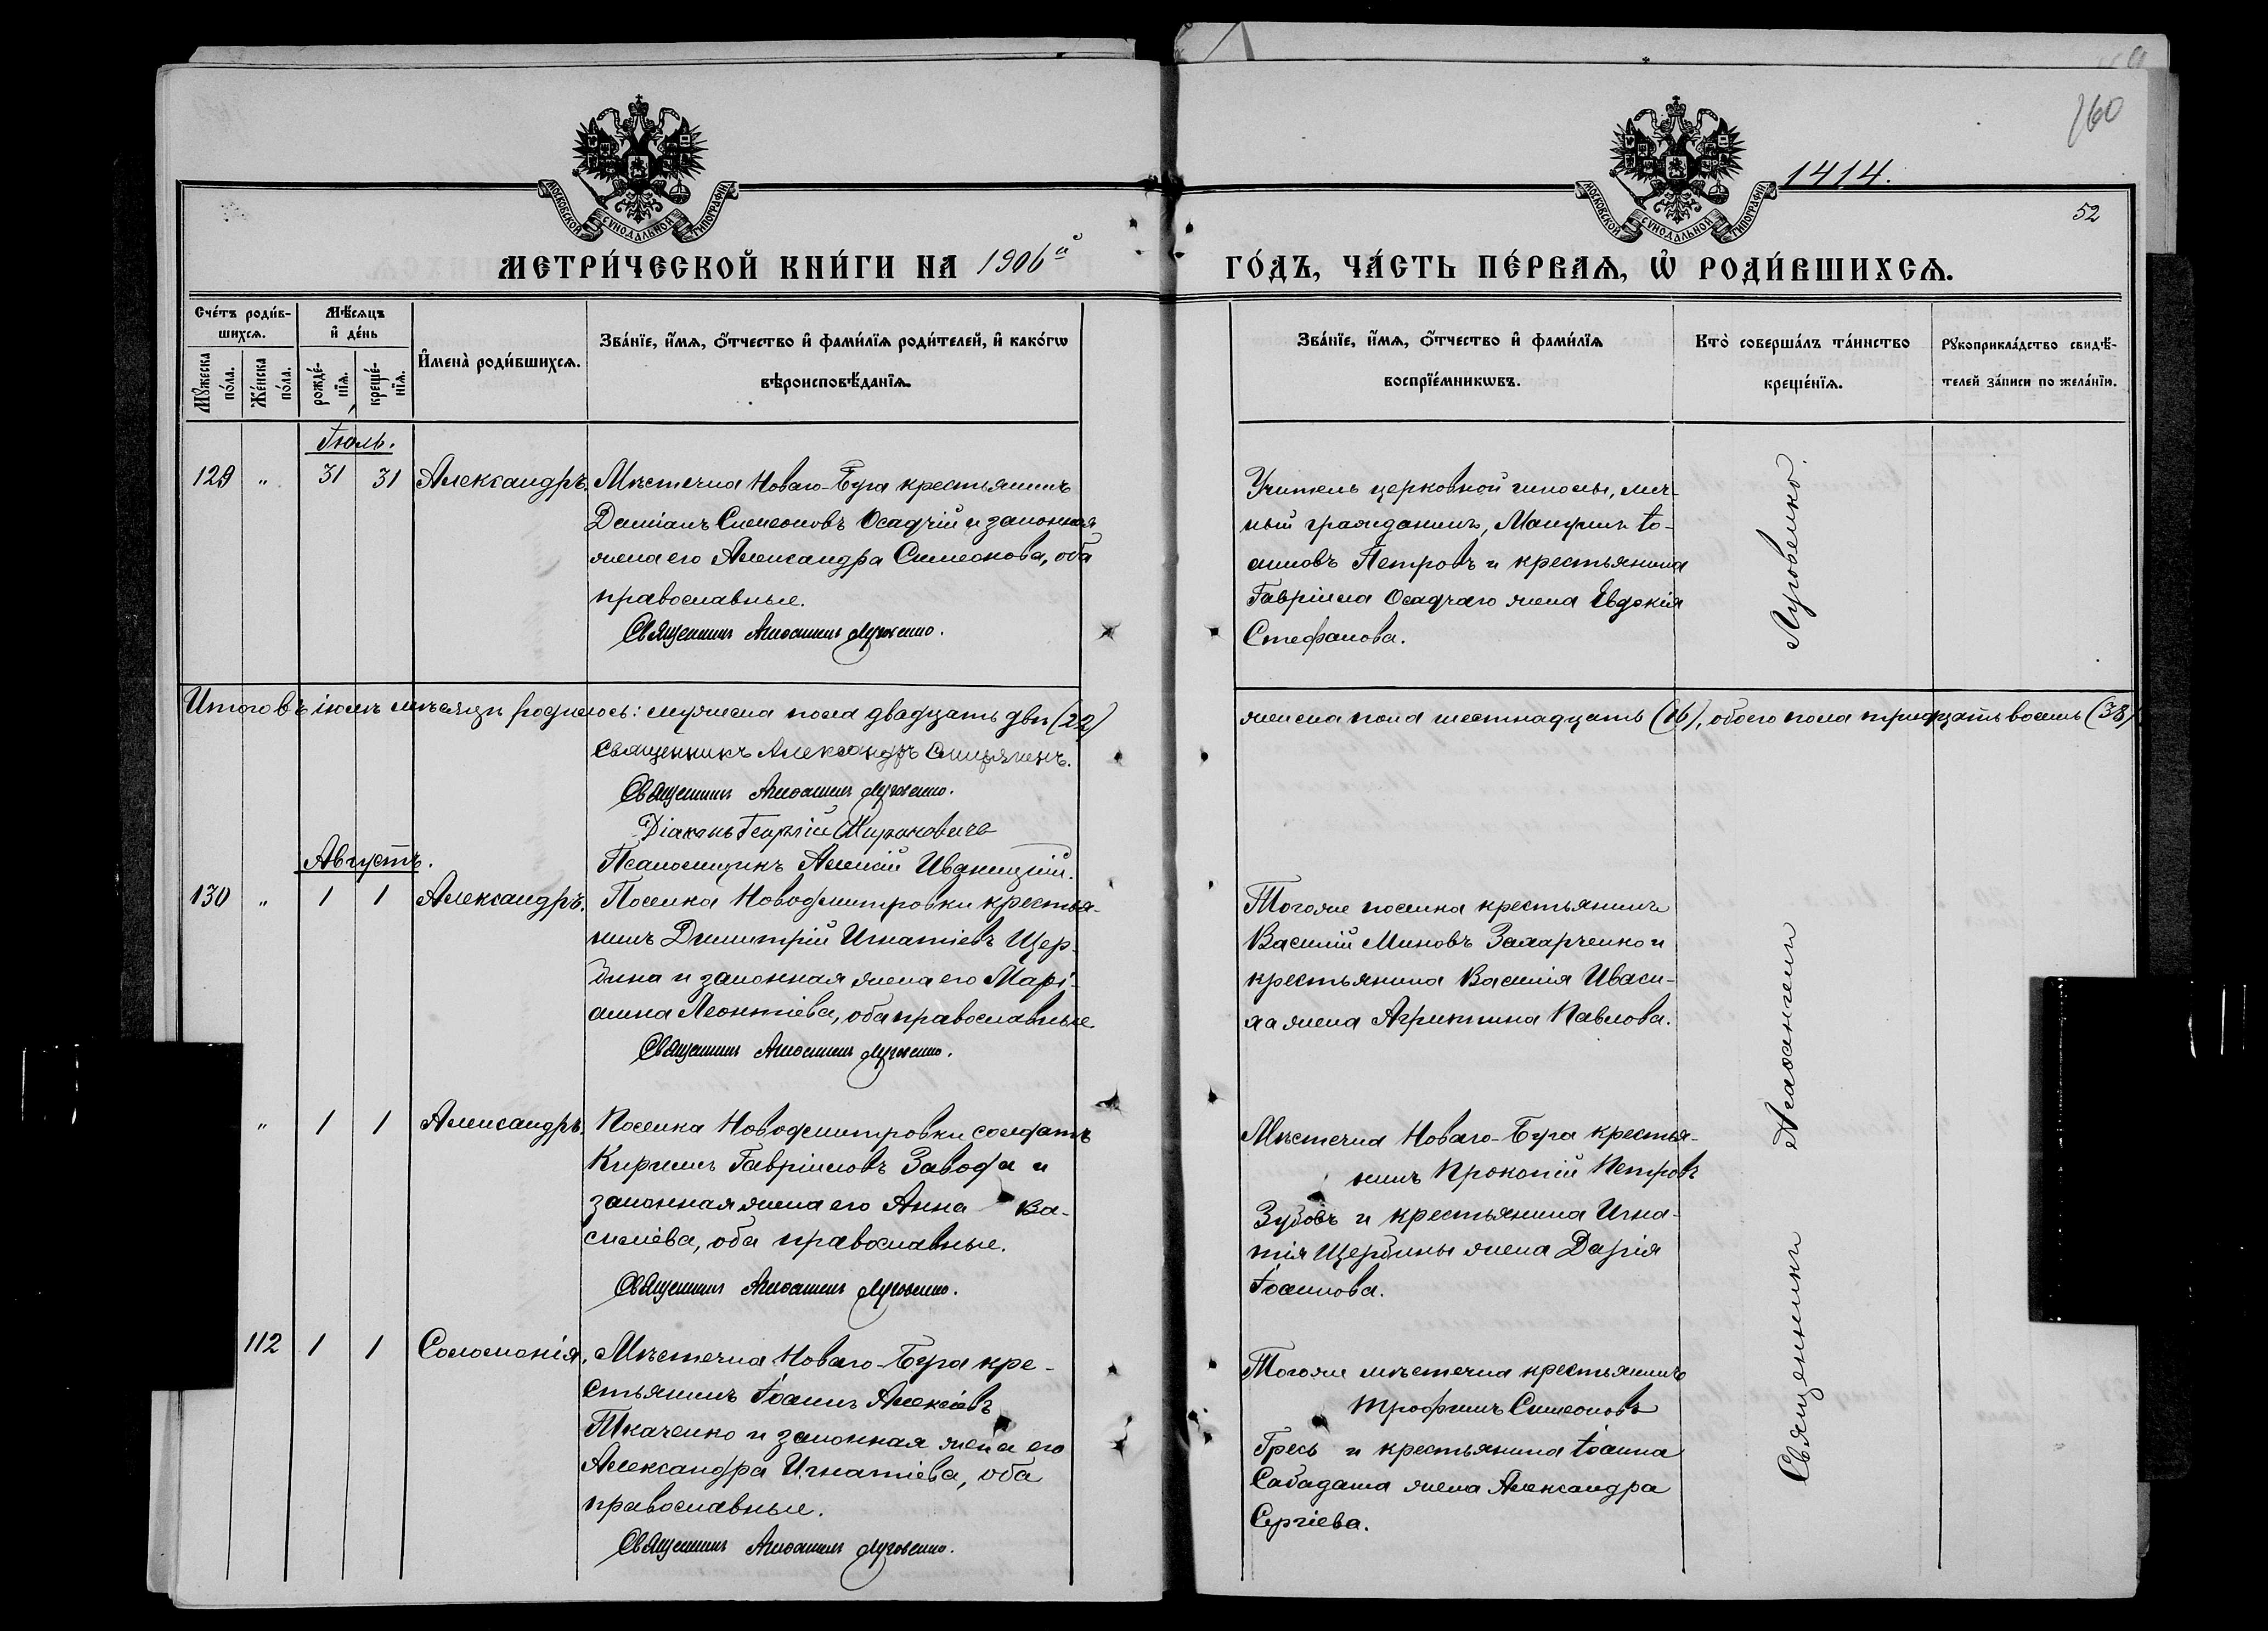 160
1414.
52
МОСКОВСКОЙ СУНОДАЛЬНОЙ ТИПОГРАФІИ
МОСКОВСКОЙ СУНОДАЛЬНОЙ ТИПОГРАФІИ
МЕТРИ́ЧЕСКОЙ КНИ́ГИ НА 1906й ГО́ДЪ, ЧА́СТЬ ПЕ́РВАѦ, Ѡ҆ РОДИ́ВШИХСѦ.
Сче́тъ роди́в-
шихсѧ.
Мѹ́жеска по́ла.
Же́нска по́ла.
Мѣ́сѧцъ
и҆ де́нь
рожде́-нїѧ.
креще́-нїѧ.
И҆мена̀ роди́вшихсѧ.
Зва́нїе, и҆́мѧ, ѻ҆́тчество и҆ фами́лїѧ роди́телей, и҆ како́гѡ
вѣроисповѣ́данїѧ.
Зва́нїе, и҆́мѧ, ѻ҆́тчество и҆ фами́лїѧ
воспрїе́мникѡвъ.
Кто̀ соверша́лъ та́инство
креще́нїѧ.
Рѹкоприкла́дство свидѣ́-
телей за́писи по жела́нїю.
Іюль.
129 " 31 31 Александръ. Мѣстечка Новаго-Буга крестьянинъ
Даміанъ Симеоновъ Осадчій и законная
жена его Александра Симеонова, оба
православные.
Священникъ Луговенко.
Учитель церковной школы, лич-
ный гражданинъ, Іо-
анновъ Петровъ и крестьянина
Гавріила Осадчаго жена Евдокія
Стефанова.
Луговенко.
Итого въ іюлѣ мѣсяцѣ родилось: мужеска пола двадцать два (22)
женска пола шестнадцать (16), обоего пола тридцать восемь (38)
Священникъ Александръ
Священникъ Луговенко.
Діаконъ Георгій Мироновичъ
Псаломщикъ Алексій Иваницкій.
Августъ.
130 " 1 1 Александръ. Поселка Новодмитровки крестья-
нинъ Димитрій Игнатіевъ Щер-
бина и законная жена его Марі-
анна Леонтіева, оба православные.
Священникъ Луговенко.
Тогоже поселка крестьянинъ
Василій Миновъ Захарченко и
крестьянина Василія Иваси-
жена Агриппина Павлова.
" 1 1 Александръ. Поселка Новодмитровки солдатъ
Кириллъ Гавріиловъ Завода и
законная жена его Анна Ва-
силіева, оба православные.
Священникъ Луговенко.
Мѣстечка Новаго-Буга крестья-
нинъ Прокопій Петровъ
Зубовъ и крестьянина Игна-
тія Щербины жена Дарія
Іоаннова.
112 1 1 Соломонія. Мѣстечка Новаго-Буга кре-
стьянинъ Іоаннъ Алексіевъ
Ткаченко и законная жена его
Александра Игнатіева, оба
православные.
Священникъ Луговенко.
Тогоже мѣстечка крестьянинъ
Трофимъ Симеоновъ
Гресь и крестьянина Іоанна
Сабадаша жена Александра
Сергіева.
Священники